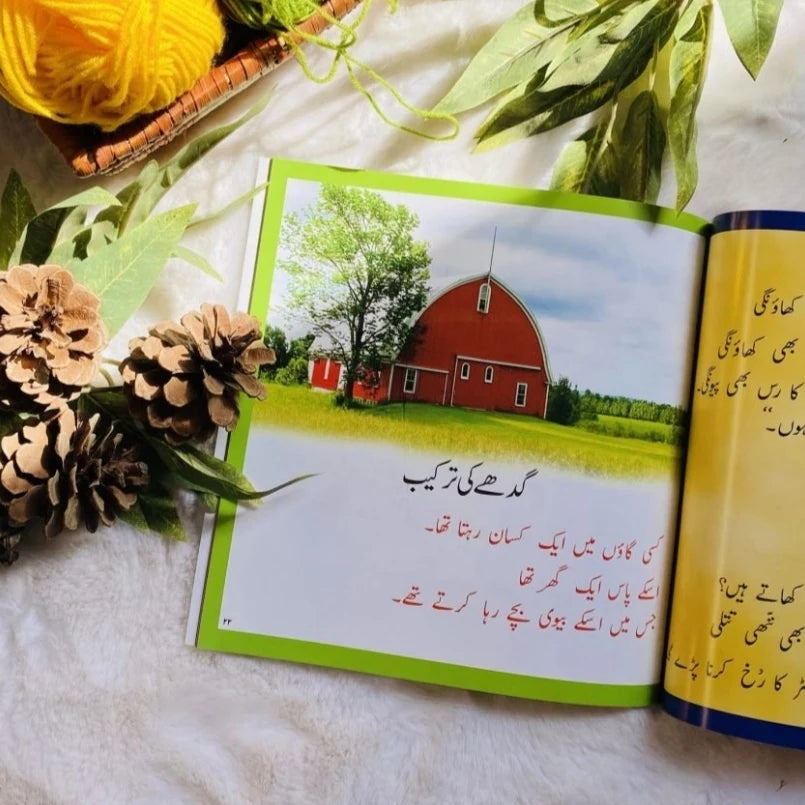 کھاؤنگی
بھی کھاؤنگی
کا رس بھی پیونگی۔
ہوں۔“
کھاتے ہیں؟
بھی ننھی تتلی
کا رُخ کرنا پڑے
گدھے کی ترکیب
کسی گاؤں میں ایک کسان رہتا تھا۔
اسکے پاس ایک گھر تھا
جس میں اسکے بیوی بچے رہا کرتے تھے۔
۲۲